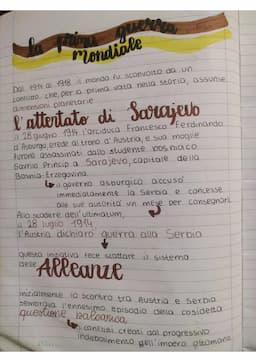 la prima guerra
mondiale
Dal 1914 al 1918 il mondo fu sconvolto da un
conflitto che, per la prima volta nella storia, assunse
dimensioni planetarie
l'attentato di Sarajevo
il 28 giugno 1914 l'arciduca Francesco Ferdinando
d'Asburgo, erede al trono d'Austria, e sua moglie
furono assassinati dallo studente bosniaco
Gavrilo Princip a Sarajevo, capitale della
Bosnia-Erzegovina
il governo asburgico accusò
immediatamente la Serbia e concesse
alle sue autorità un mese per consegnarli
Allo scadere dell'ultimatum,
il 28 luglio 1914
l'Austria dichiarò guerra alla Serbia
questa iniziativa fece scattare il sistema
delle Alleanze
inizialmente lo scontro tra Austria e Serbia
sembrava l'ennesimo episodio della cosidetta
questione balcanica
i conflitti creati dal progressivo
indebolimento dell'impero ottomano